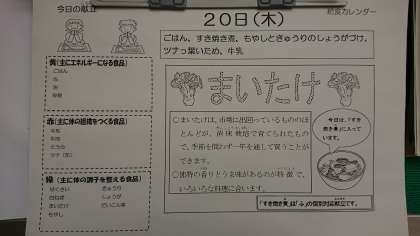 今日の献立
給食カレンダー
20日(木)
ごはん、すき焼き煮、もやしときゅうりのしょうがづけ、
ツナっ葉いため、牛乳
黄(主にエネルギーになる食品)
ごはん
赤(主に体の組織をつくる食品)
牛乳
ツナ
緑(主に体の調子を整える食品)
はくさい
きゅうり
しょうが
まいたけ
だいこん葉
もやし
まいたけ
○まいたけは、市場に出回っているもののほ
とんどが、菌床栽培で育てられたもの
で、季節を問わず一年を通して買うことが
できます。
○独特の香りとうま味があるのが特徴で、
いろいろな料理に合います。
今日は、「すき
焼き煮」に入って
います。
「すき焼き煮」は「ふ」の個別対応献立です。